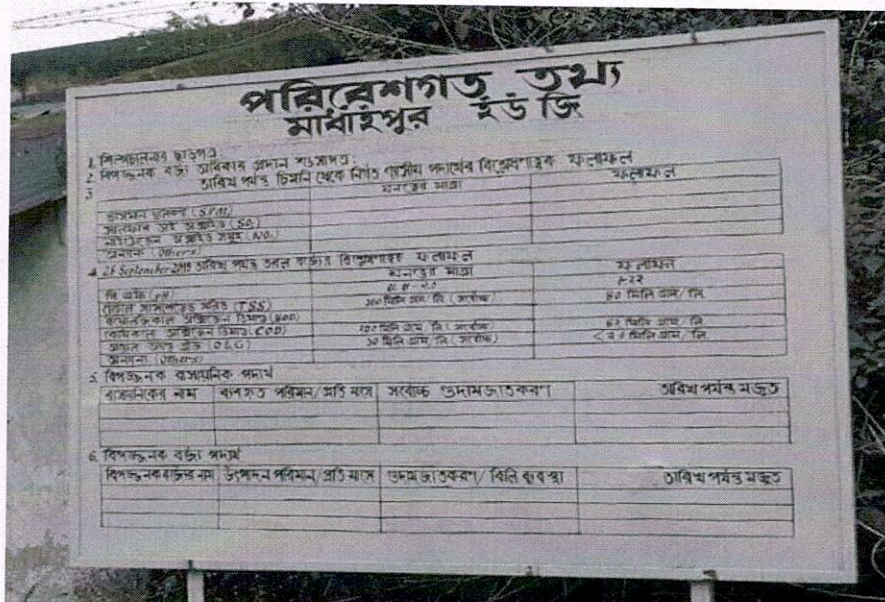 পরিবেশগত তথ্য
মাধাইপুর ইউ জি
1. শিল্পচালনার ছাড়পত্র:
2. বিপজ্জনক বর্জ্য অধিকার প্রদান
3. তারিখ পর্যন্ত চিমনি থেকে নির্গত গ্যাসীয় পদার্থের বিশ্লেষণাত্মক ফলাফল
ঘনত্বের মাত্রা ফলাফল
(SPM)
সালফার ডাই অক্সাইড (SO₂)
নাইট্রোজেন অক্সাইড সমূহ (NOₓ)
অন্যান্য (Others)
4. 28 September 2019 তারিখ পর্যন্ত তরল বর্জ্যের বিশ্লেষণাত্মক ফলাফল
ঘনত্বের মাত্রা ফলাফল
পি এইচ (pH)
টোটাল সাসপেন্ডেড সলিড (TSS) মিলি গ্রাম/ লি (সর্বোচ্চ) মিলি গ্রাম/ লি
বায়োকেমিক্যাল অক্সিজেন ডিমান্ড (BOD)
কেমিক্যাল অক্সিজেন ডিমান্ড (COD) মিলি গ্রাম/ লি (সর্বোচ্চ) মিলি গ্রাম/ লি
অয়েল অ্যান্ড গ্রীজ (O&G) মিলি গ্রাম/ লি (সর্বোচ্চ) মিলি গ্রাম/ লি
অন্যান্য (Others)
5. বিপজ্জনক রাসায়নিক পদার্থ
রাসায়নিকের নাম ব্যবহৃত পরিমান/প্রতি মাসে সর্বোচ্চ গুদামজাতকরণ তারিখ পর্যন্ত মজুত
6. বিপজ্জনক বর্জ্য পদার্থ
বিপজ্জনক বর্জ্যের নাম উৎপাদন পরিমান/প্রতি মাসে গুদামজাতকরণ/ বিলি ব্যবস্থা তারিখ পর্যন্ত মজুত